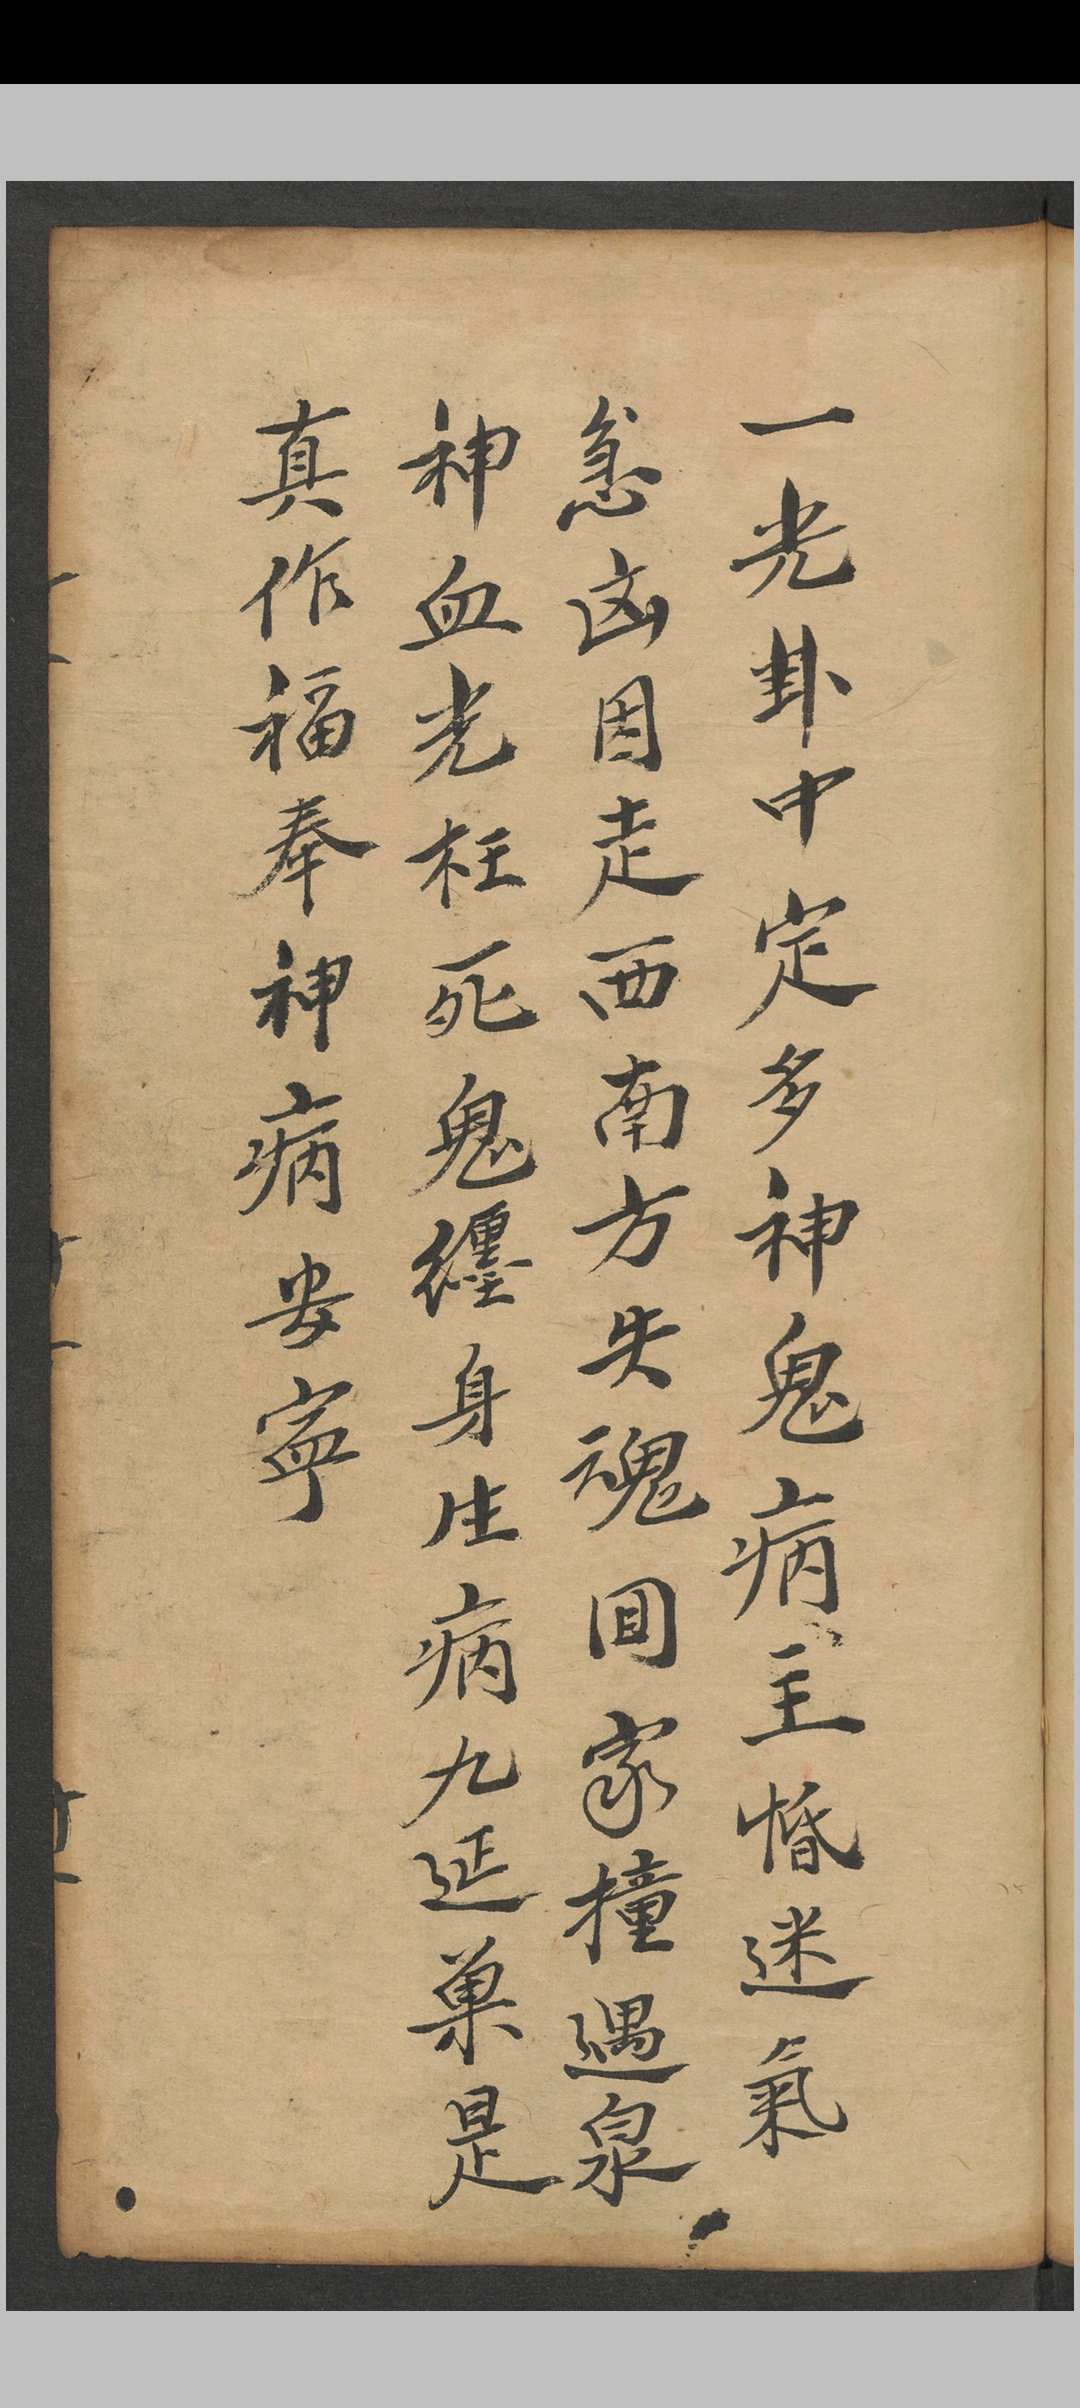 一光卦中定多神鬼病主惛迷氣
急凶因走西南方失魂囬家撞遇泉
神血光枉死鬼纏身生病九延巢是
真作福奉神病安寧